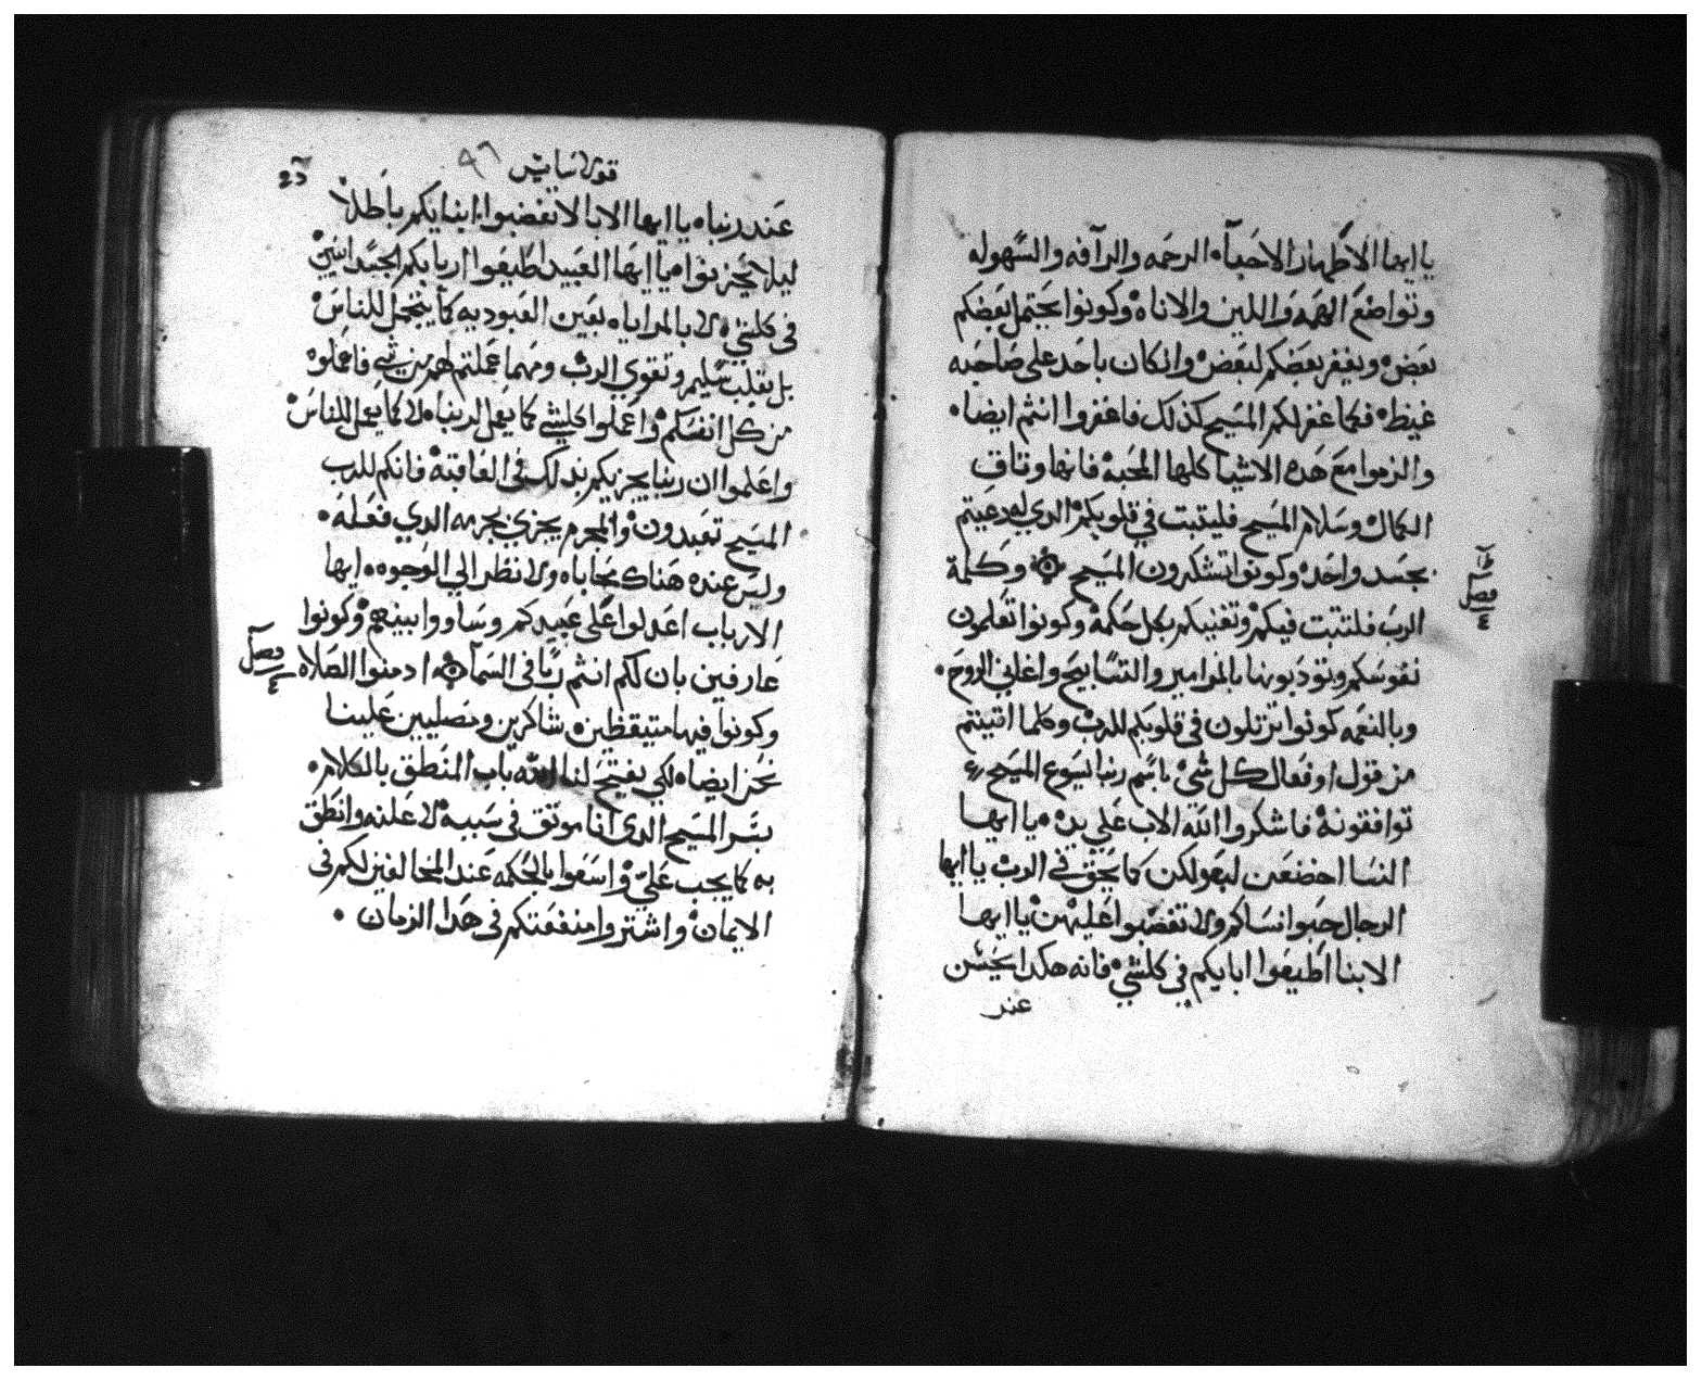 يا ايها الاطهار الاحباء الرحمه والرآفه والسهوله
وتواضع الهمه واللين والاناه وكونوا يحتمل بعضكم
بعض ويغفر بعضكم لبعض وانكان باحد على صاحبه
غيظ فكما غفر لكم المسيح كذلك فاغفروا انتم ايضا
والزموا مع هده الاشيا كلها المحبه فانها وتاق
الكمال وسلام المسيح فليتبت في قلوبكم الدي له دعيتم
بجسد واحد وكونوا تشكرون المسيح وكلمة
الرب فلتتبت فيكم وتغنيكم بكل حكمه وكونوا تعلمون
نفوسكم وتودبونها بالمزامير والتسابيح واغاني الروح
وبالنعمه كونوا ترتلون في قلوبكم للرب وكلما اتيتم
من قول او فعال كل شى باسم ربنا يسوع المسيح
توافقونه فاشكروا الله الاب علي يده يا ايها
النسا اخضعن لبعولكن كما يحق في الرب يا ايها
الرجال حبوا نساكم ولا تغضبوا عليهن يا ايها
الابنا اطيعوا ابايكم في كلشي فانه هكدا يحسن
عند
فصل
٤
قولاسايس ٩٦
عند ربنا يا ايها الابا لا تغضبوا ابنايكم باطلا
ليلا يحزنوا يا ايها العبيد اطيعوا اربابكم الجسدانيين
في كلشي لا بالمراياه بعين العبوديه كما يتجمل للناس
بل بقلب سليم وتقوي الرب ومهما عملتم لهم من شي فاعملوه
من كل انفسكم واعملوا كلشي كما يعمل لربنا لا كما يعمل للناس
واعلموا ان ربنا يجزيكم بدلك في العاقبه فانكم للرب
المسيح تعبدون والمجرم يجزي بجرمه الدي فعله
وليس عنده هناك محاباه ولا نظر الي الوجوه ايها
الارباب اعدلوا على عبيدكم وساووا بينهم وكونوا
عارفين بان لكم انتم ربا في السمآ ادمنوا الصلاه
وكونوا فيها متيقظين شاكرين ومصليين علينا
نحن ايضا لكي يفتح لنا الله باب المنطق بالكلام
بسر المسيح الدي انا موتق في سببه لاعلنه وانطق
به كما يجب علي واسعوا بالحكمه عند المخالفين لكم فى
الايمان واشتروا منفعتكم فى هدا الزمان
فصل
٤